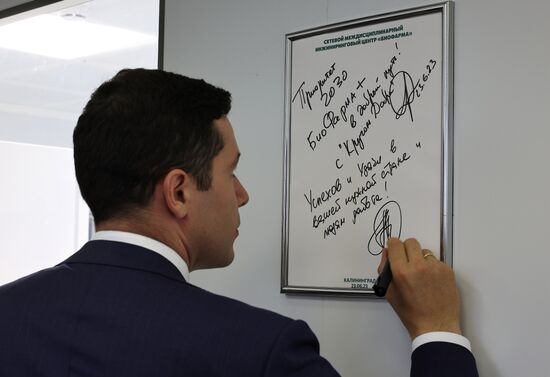 СЕТЕВОЙ МЕЖДИСЦИПЛИНАРНЫЙ
ИНЖИНИРИНГОВЫЙ ЦЕНТР «БИОФАРМА»
Приоритет
2030
БиоФарма +
в добрый путь!
с "Кругом Добра"
23.6.23
Успехов и удачи в
вашей нужной стране и
людям работе!
КАЛИНИНГРАД
23.06.23